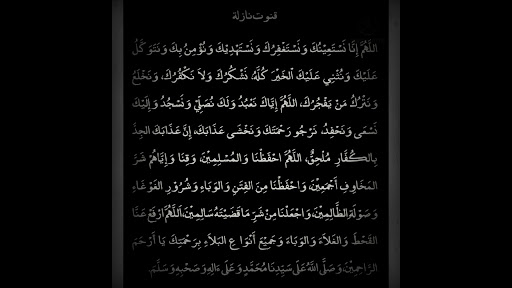 قنوت نازلة
اللَّهُمَّ إِنَّا نَسْتَعِيْنُكَ وَنَسْتَغْفِرُكَ وَنَسْتَهْدِيْكَ وَنُؤْمِنُ بِكَ وَنَتَوَكَّلُ
عَلَيْكَ وَنُثْنِي عَلَيْكَ الْخَيْرَ كُلَّهُ، نَشْكُرُكَ وَلاَ نَكْفُرُكَ، وَنَخْلَعُ
وَنَتْرُكُ مَنْ يَفْجُرُكَ، اللَّهُمَّ إِيَّاكَ نَعْبُدُ وَلَكَ نُصَلِّي وَنَسْجُدُ وَإِلَيْكَ
نَسْعَى وَنَحْفِدُ، نَرْجُو رَحْمَتَكَ وَنَخْشَى عَذَابَكَ، إِنَّ عَذَابَكَ الْجِدَّ
بِالْكُفَّارِ مُلْحِقٌ، اللَّهُمَّ احْفَظْنَا وَالْمُسْلِمِيْنَ، وَقِنَا وَإِيَّاهُمْ شَرَّ
الْمَخَاوِفِ أَجْمَعِيْنَ، وَاحْفَظْنَا مِنَ الْفِتَنِ وَالْوَبَاءِ وَشُرُوْرِ الْغَوْغَاءِ
وَصَوْلَةِ الظَّالِمِيْنَ، وَاجْعَلْنَا مِنْ شَرِّ مَا قَضَيْتَهُ سَالِمِيْنَ، اَللَّهُمَّ ارْفَعْ عَنَّا
الْقَحْطَ وَالْغَلاَءَ وَالْوَبَاءَ وَجَمِيْعَ أَنْوَاعِ الْبَلاَءِ بِرَحْمَتِكَ يَا أَرْحَمَ
الرَّاحِمِيْنَ، وَصَلَّى اللهُ عَلَى سَيِّدِنَا مُحَمَّدٍ وَعَلَى ءَالِهِ وَصَحْبِهِ وَسَلَّمَ